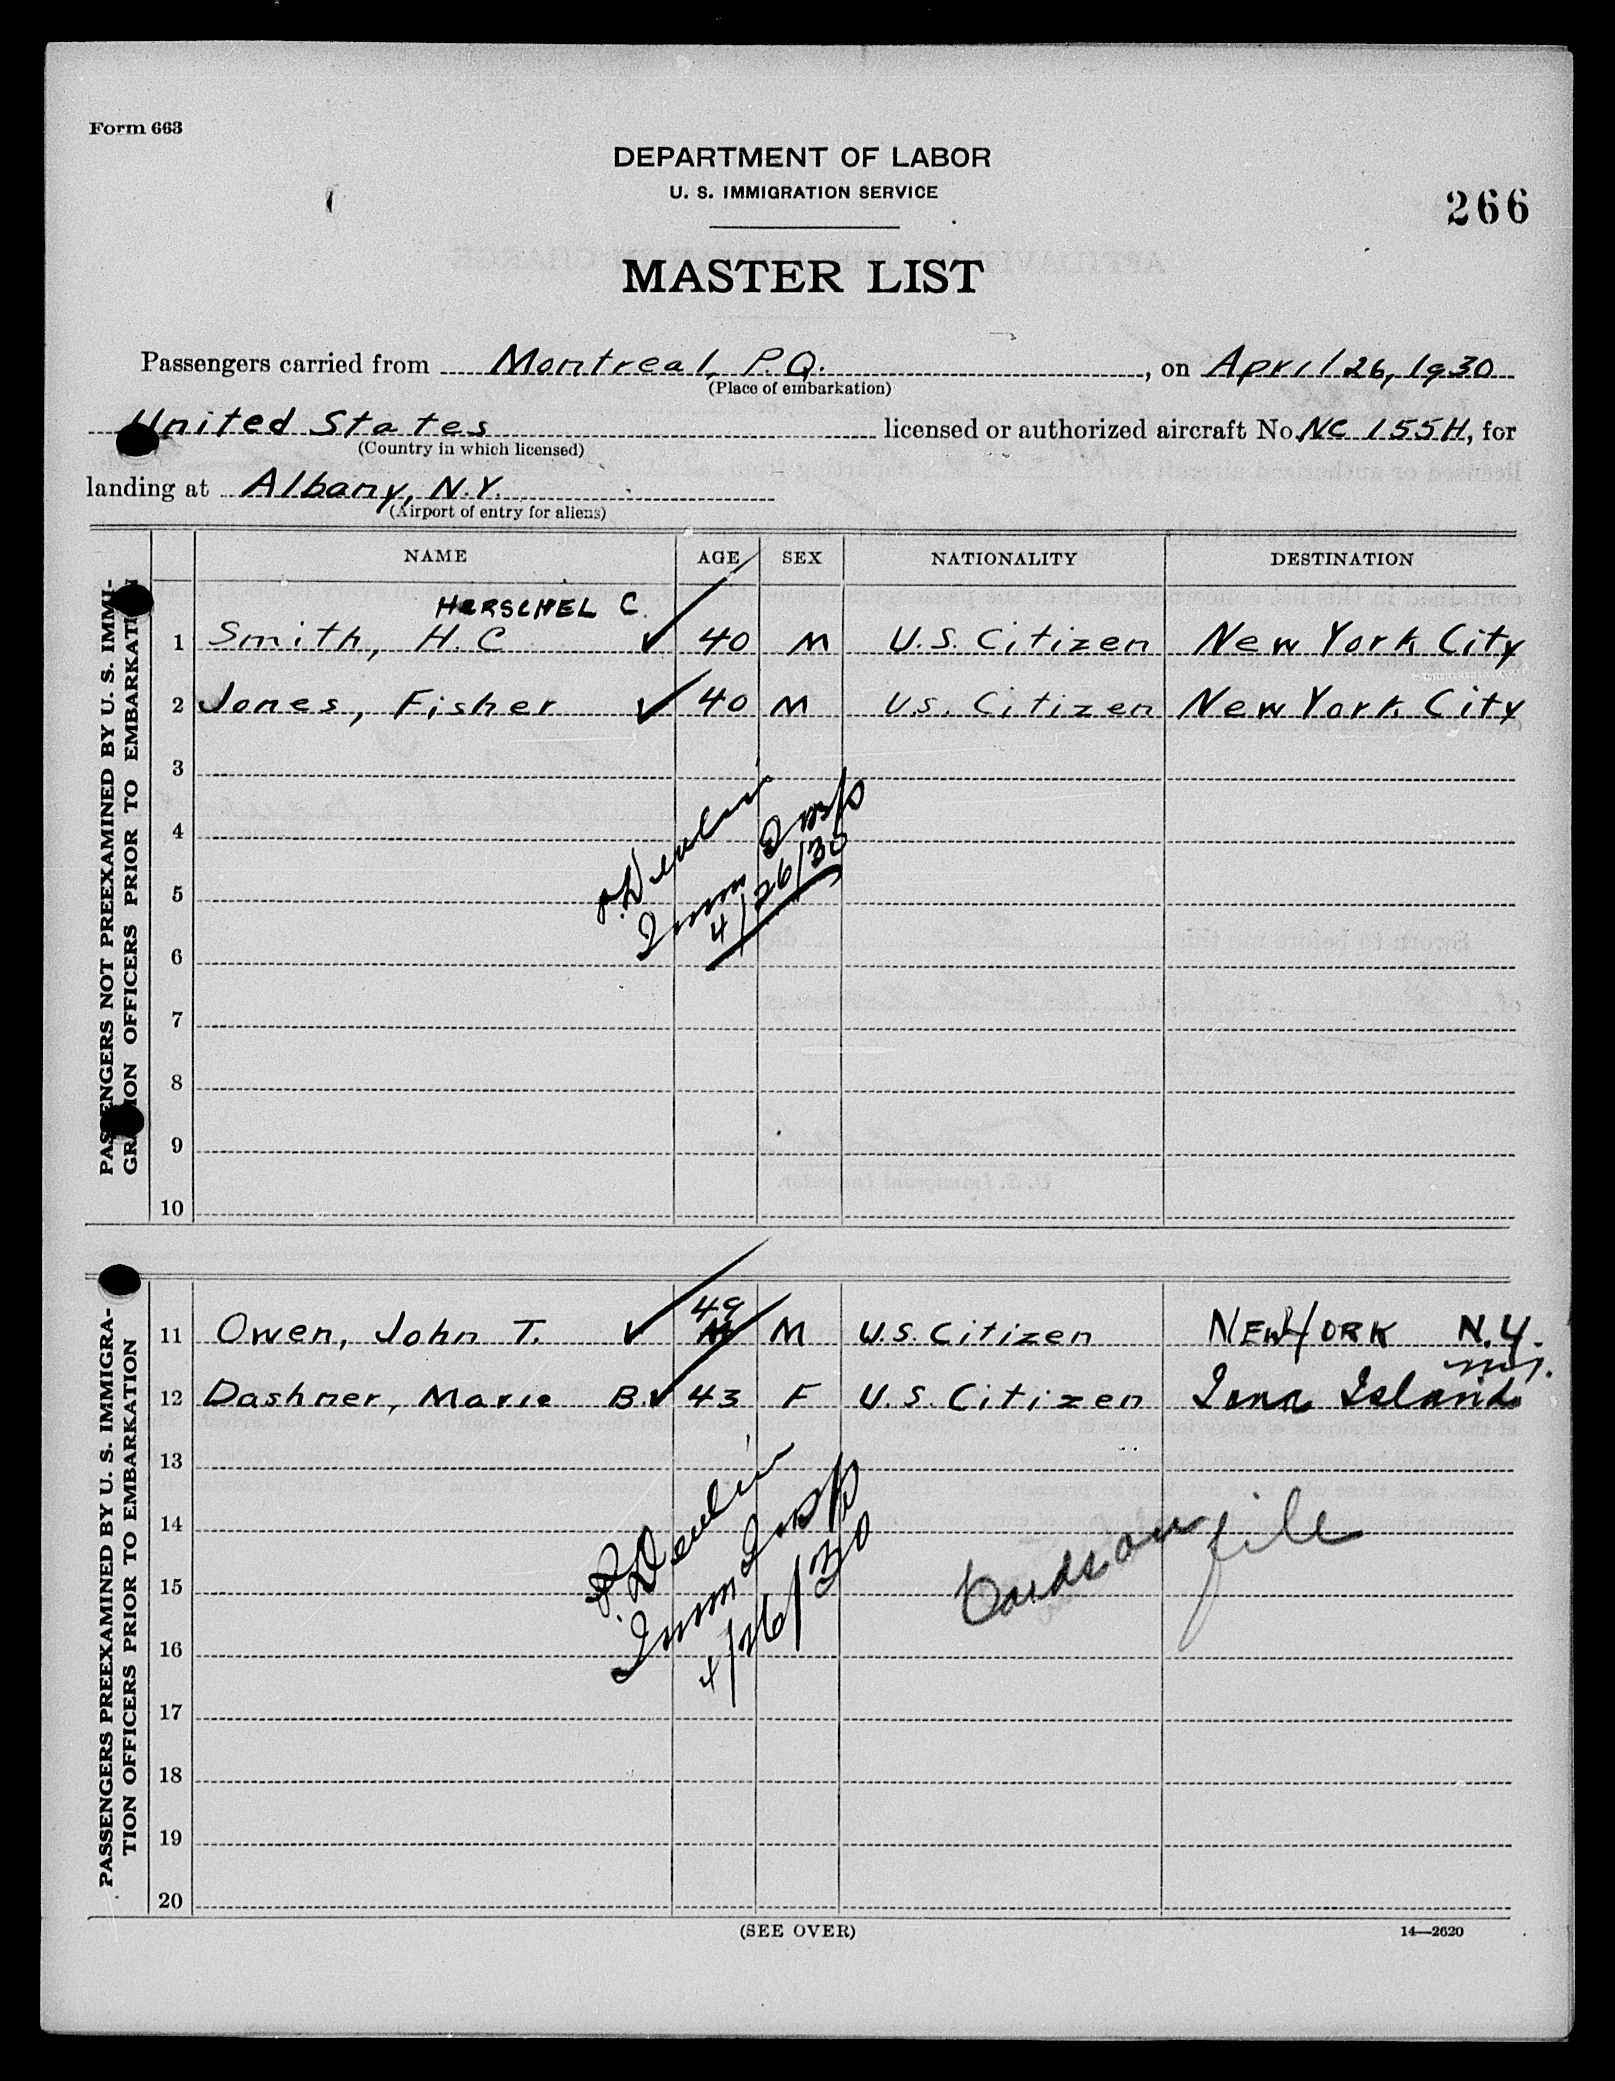 Form 663
DEPARTMENT OF LABOR
U. S. IMMIGRATION SERVICE
266
MASTER LIST
Passengers carried from Montreal, P.Q. , on April 26, 1930
(Place of embarkation)
United States licensed or authorized aircraft No. NC 155H, for
(Country in which licensed)
landing at Albany, N.Y.
(Airport of entry for aliens)
NAME AGE SEX NATIONALITY DESTINATION
PASSENGERS NOT PREEXAMINED BY U. S. IMMI-
GRATION OFFICERS PRIOR TO EMBARKATION
HERSCHEL C.
1 Smith, H. C ✓ 40 M U.S. Citizen New York City
2 Jones, Fisher ✓ 40 M U.S. Citizen New York City
3
4
5
6
7
8
9
10
P. Devlin
Imm Insp
4/26/30
PASSENGERS PREEXAMINED BY U. S. IMMIGRA-
TION OFFICERS PRIOR TO EMBARKATION
49
11 Owen, John T. ✓ M U.S. Citizen NEW YORK N.Y.
12 Dashner, Marie B. ✓ 43 F U.S. Citizen Iona Island
13
14
15
16
17
18
19
20
P. Devlin
Imm Insp
4/26/30
Cards on file
(SEE OVER)
14—2620